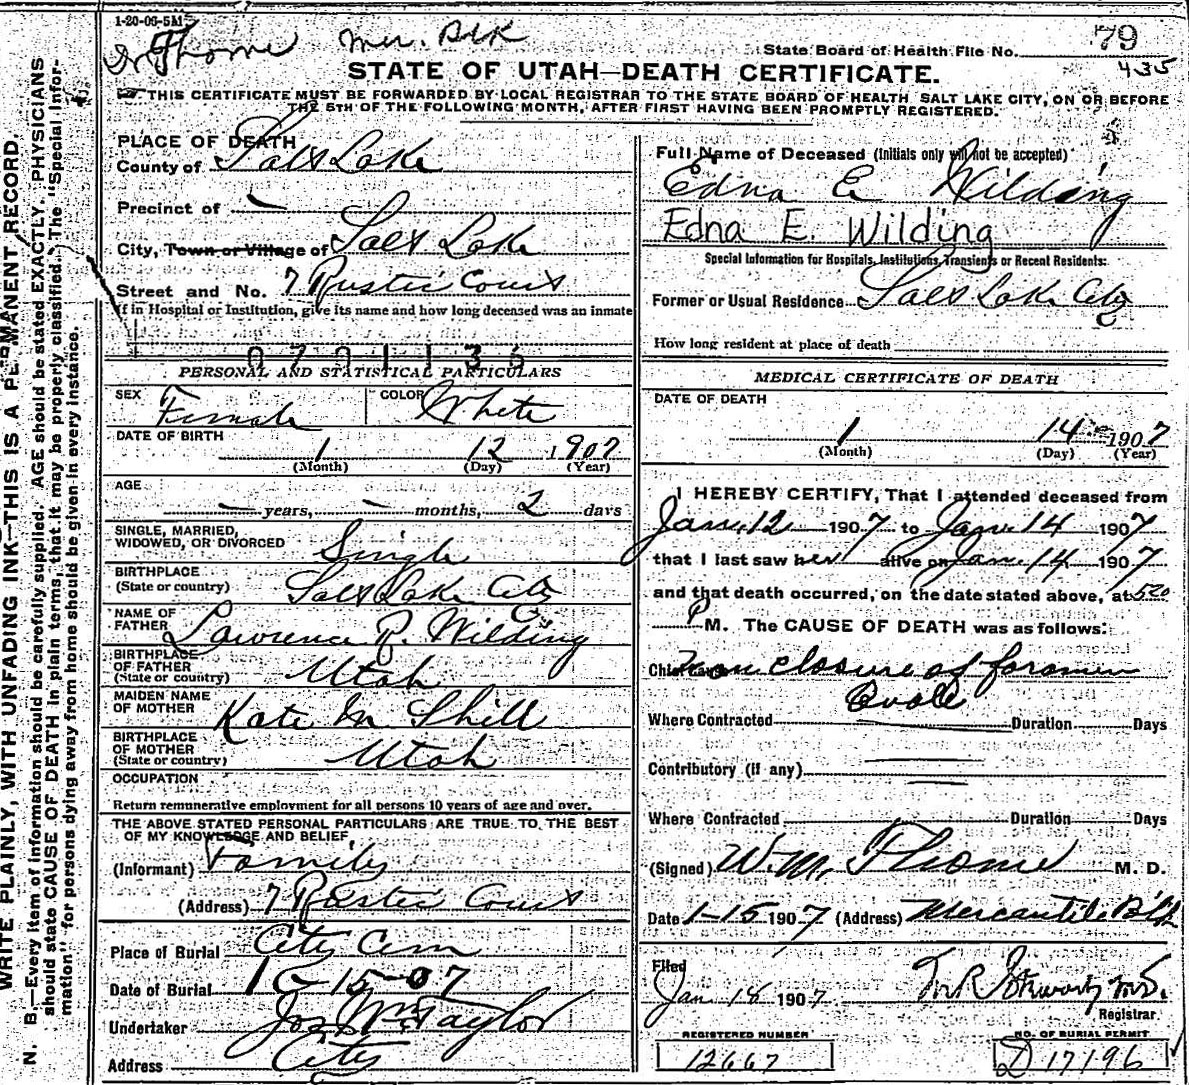 1-20-06-5M
Dr Thome Mer. Blk
State Board of Health File No. 79
435
STATE OF UTAH—DEATH CERTIFICATE.
THIS CERTIFICATE MUST BE FORWARDED BY LOCAL REGISTRAR TO THE STATE BOARD OF HEALTH SALT LAKE CITY, ON OR BEFORE
THE 5TH OF THE FOLLOWING MONTH, AFTER FIRST HAVING BEEN PROMPTLY REGISTERED.
WRITE PLAINLY, WITH UNFADING INK—THIS IS A PERMANENT RECORD.
N. B.—Every item of information should be carefully supplied. AGE should be stated EXACTLY. PHYSICIANS
should state CAUSE OF DEATH in plain terms, that it may be properly classified. The "Special Infor-
mation" for persons dying away from home should be given in every instance.
PLACE OF DEATH
County of Salt Lake
Precinct of —
City, Town or Village of Salt Lake
Street and No. 7 Rustic Court
If in Hospital or Institution, give its name and how long deceased was an inmate
0701135
PERSONAL AND STATISTICAL PARTICULARS
SEX Female COLOR White
DATE OF BIRTH
1 12 1907
(Month) (Day) (Year)
AGE
— years, — months, 2 days
SINGLE, MARRIED,
WIDOWED, OR DIVORCED Single
BIRTHPLACE
(State or country) Salt Lake City
NAME OF
FATHER Lawrence P. Wilding
BIRTHPLACE
OF FATHER
(State or country) Utah
MAIDEN NAME
OF MOTHER Kate M Shill
BIRTHPLACE
OF MOTHER
(State or country) Utah
OCCUPATION
Return remunerative employment for all persons 10 years of age and over.
THE ABOVE STATED PERSONAL PARTICULARS ARE TRUE TO THE BEST
OF MY KNOWLEDGE AND BELIEF
(Informant) Family
(Address) 7 Rustic Court
Place of Burial City Cem
Date of Burial 1-15-07
Undertaker Jos Wm Taylor
Address City
Full Name of Deceased (Initials only will not be accepted)
Edna E Wilding
Edna E. Wilding
Special Information for Hospitals, Institutions, Transients or Recent Residents:
Former or Usual Residence Salt Lake City
How long resident at place of death
MEDICAL CERTIFICATE OF DEATH
DATE OF DEATH
1 14 1907
(Month) (Day) (Year)
I HEREBY CERTIFY, That I attended deceased from
Jan. 12 1907 to Jan. 14 1907
that I last saw her alive on Jan. 14 1907
and that death occurred, on the date stated above, at 5 20
P M. The CAUSE OF DEATH was as follows:
Chief Cause Non closure of foramen
Ovale
Where Contracted Duration Days
Contributory (if any)
Where Contracted Duration Days
(Signed) W. M. Thome M. D.
Date 1-15 1907 (Address) Mercantile Blk
Filed
Jan 18 1907
Registrar.
REGISTERED NUMBER
12667
NO. OF BURIAL PERMIT
D 17196